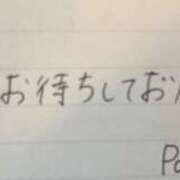 お待ちしてお
Pa